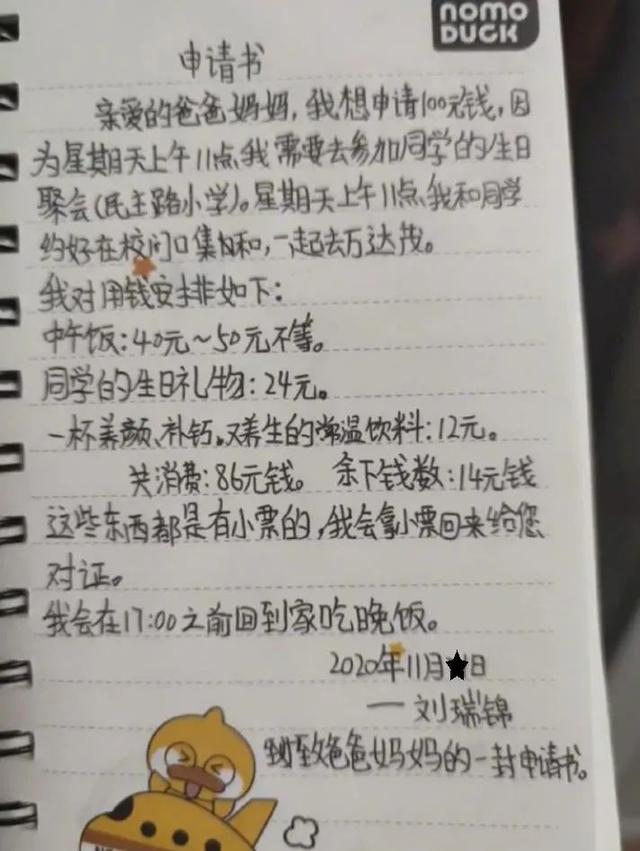 nomo
DUCK
申请书
亲爱的爸爸妈妈,我想申请100元钱,因
为星期天上午11点我需要去参加同学的生日
聚会(民主路小学)。星期天上午11点我和同学
约好在校门口集和,一起去万达茂。
我对用钱安排如下:
中午饭:40元~50元不等。
同学的生日礼物:24元。
一杯养颜、补钙。又养生的常温饮料:12元。
共消费:86元钱。 余下钱数:14元钱
这些东西都是有小票的,我会拿小票回来给您
对证。
我会在17:00之前回到家吃晚饭。
2020年11月 日
——刘瑞锦
致爸爸妈妈的一封申请书。